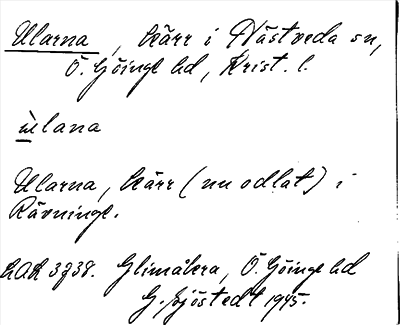 Ularna, kärr i Nästveda sn,
Ö. Göinge hd, Krist. l.
ùlana
Ularna, kärr (nu odlat) i
Rävninge.
LAL 3738. Glimåkra, Ö. Göinge hd
G. Sjöstedt 1945.